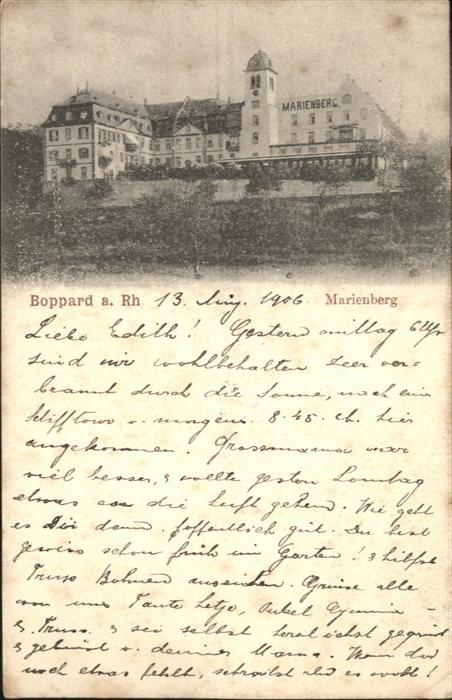 MARIENBERG.
Boppard a. Rh 13. Aug. 1906 Marienberg
Liebe Edith! Gestern mittag 6 Uhr
sind wir wohlbehalten seer ver=
brannt durch die Sonne, nach ein
v. morgens 8.45. ab. hier
angekommen. Grossmama war
viel besser, & wollte gestern Sonntag
etwas an die Luft gehen. Wie geht
es Dir denn. hoffentlich gut. Du bist
gewiss schon früh im Garten! & hilfst
Truss Bohnen. Grüsse alle
von uns Tante Onkel
& Truss. & sei selbst herzlichst gegrüsst
& geküsst v. deiner Mama. Wenn dir
noch etwas fehlt, schreibst du es wohl!